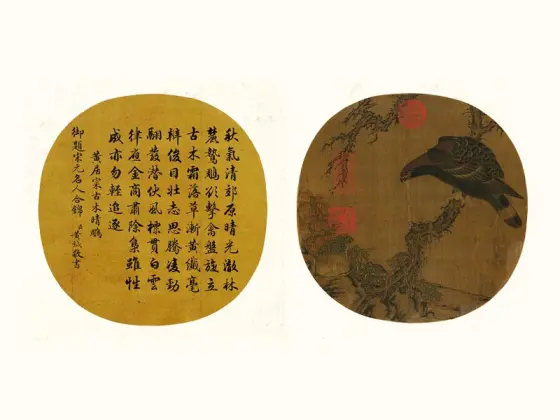 秋氣清郊原晴光澈林
麓鷙鵰欲擊禽盤旋立
古木霜落草漸黃纖毫
辯俊目壯志思騰動
翮發潛伏風標貫白雲
律應金商肅除梟雖性
成亦勿輕追逐
黃居寀古木晴鵰
御題宋元名人合錦 臣黃鉞敬書